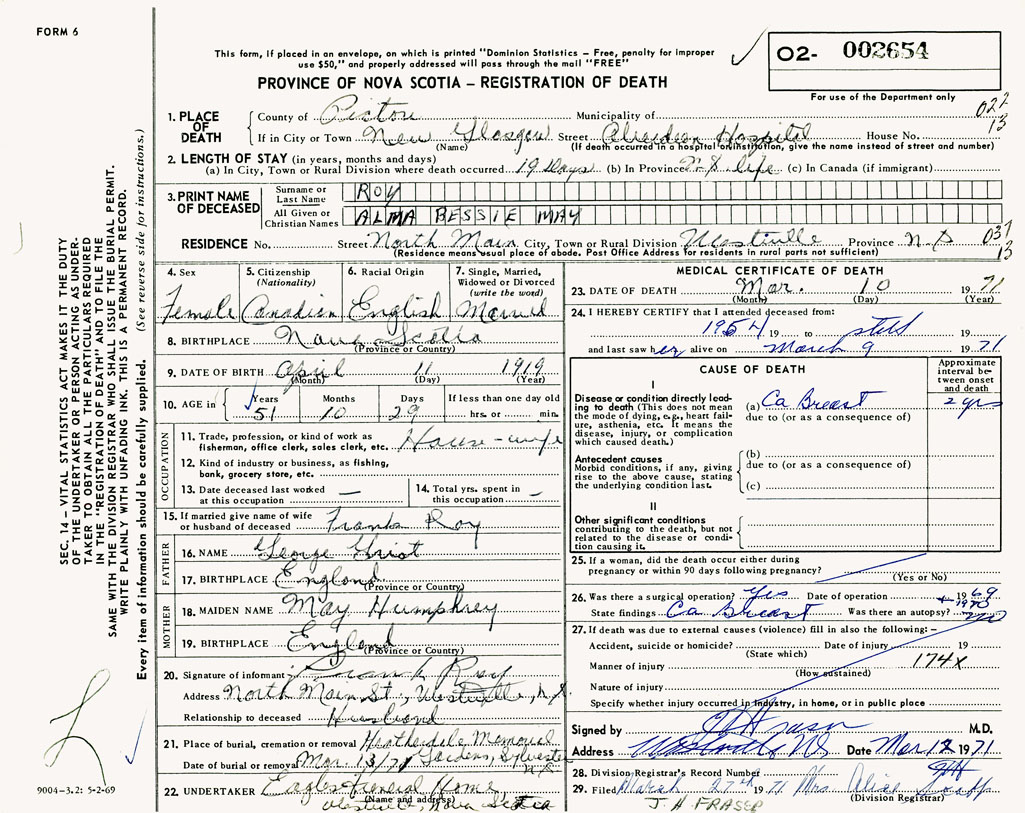 FORM 6
This form, if placed in an envelope, on which is printed "Dominion Statistics – Free, penalty for improper
use $50," and properly addressed will pass through the mail "FREE"
02- 002654
For use of the Department only
PROVINCE OF NOVA SCOTIA – REGISTRATION OF DEATH
1. PLACE OF DEATH
County of Pictou Municipality of
022
13
If in City or Town New Glasgow Street Aberdeen Hospital House No.
(Name) (If death occurred in a hospital or institution, give the name instead of street and number)
2. LENGTH OF STAY (in years, months and days)
(a) In City, Town or Rural Division where death occurred 19 days (b) In Province N.S. life (c) In Canada (if immigrant)
3. PRINT NAME OF DECEASED
Surname or Last Name ROY
All Given or Christian Names ALMA BESSIE MAY
RESIDENCE No. Street North Main City, Town or Rural Division Westville Province N.S
037
13
(Residence means usual place of abode. Post Office Address for residents in rural parts not sufficient)
4. Sex
Female
5. Citizenship (Nationality)
Canadian
6. Racial Origin
English
7. Single, Married, Widowed or Divorced (write the word)
Married
8. BIRTHPLACE Nova Scotia
(Province or Country)
9. DATE OF BIRTH April 11 1919
(Month) (Day) (Year)
10. AGE in Years Months Days If less than one day old
51 10 29 hrs. or min.
OCCUPATION
11. Trade, profession, or kind of work as fisherman, office clerk, sales clerk, etc. House-wife
12. Kind of industry or business, as fishing, bank, grocery store, etc.
13. Date deceased last worked at this occupation —
14. Total yrs. spent in this occupation –
15. If married give name of wife or husband of deceased Frank Roy
FATHER
16. NAME George
17. BIRTHPLACE England
(Province or Country)
MOTHER
18. MAIDEN NAME May Humphrey
19. BIRTHPLACE England
(Province or Country)
20. Signature of informant Frank Roy
Address North Main St., Westville, N.S.
Relationship to deceased Husband
21. Place of burial, cremation or removal Heatherdale Memorial
Gardens, Sylvester
N.S
Date of burial or removal Mar. 13/71
22. UNDERTAKER Eagles Funeral Home
(Name and address)
Westville, Nova Scotia
MEDICAL CERTIFICATE OF DEATH
23. DATE OF DEATH Mar. 10 1971
(Month) (Day) (Year)
24. I HEREBY CERTIFY that I attended deceased from:
1954 19 to still 19
and last saw her alive on March 9 1971
CAUSE OF DEATH
Approximate interval between onset and death
I
Disease or condition directly leading to death (This does not mean the mode of dying, e.g., heart failure, asthenia, etc. It means the disease, injury, or complication which caused death.)
(a) Ca Breast 2 yrs
due to (or as a consequence of)
Antecedent causes
Morbid conditions, if any, giving rise to the above cause, stating the underlying condition last.
(b)
due to (or as a consequence of)
(c)
II
Other significant conditions
contributing to the death, but not related to the disease or condition causing it.
25. If a woman, did the death occur either during
pregnancy or within 90 days following pregnancy?
(Yes or No)
26. Was there a surgical operation? Yes Date of operation 1969
+ 1970
State findings Ca Breast Was there an autopsy? no
27. If death was due to external causes (violence) fill in also the following:–
Accident, suicide or homicide? Date of injury 19
(State which)
174x
Manner of injury
(How sustained)
Nature of injury
Specify whether injury occurred in industry, in home, or in public place
Signed by M.D.
Address Westville NS Date Mar 12 1971
28. Division Registrar's Record Number
29. Filed March 27th 1971 Mrs. Alice
(Division Registrar)
J. H. FRASER
SEC. 14 – VITAL STATISTICS ACT MAKES IT THE DUTY
OF THE UNDERTAKER OR PERSON ACTING AS UNDER-
TAKER TO OBTAIN ALL THE PARTICULARS REQUIRED
IN THE "REGISTRATION OF DEATH" AND TO FILE THE
SAME WITH THE DIVISION REGISTRAR WHO SHALL ISSUE THE BURIAL PERMIT.
WRITE PLAINLY WITH UNFADING INK. THIS IS A PERMANENT RECORD.
Every item of information should be carefully supplied. (See reverse side for instructions.)
9004-3.2: 5-2-69